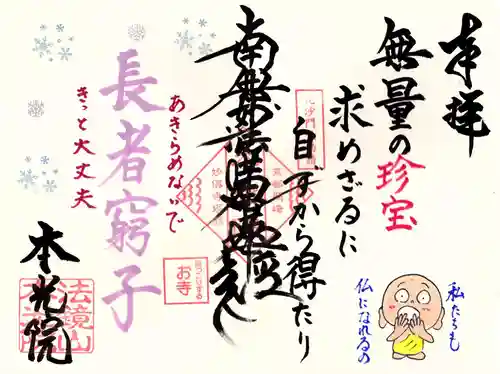 奉拝
無量の珍宝
求めざるに
自ずから得たり
南無妙法蓮華経
あきらめないで
長者窮子
きっと大丈夫
本光院
お寺
私たちも
仏になれるの